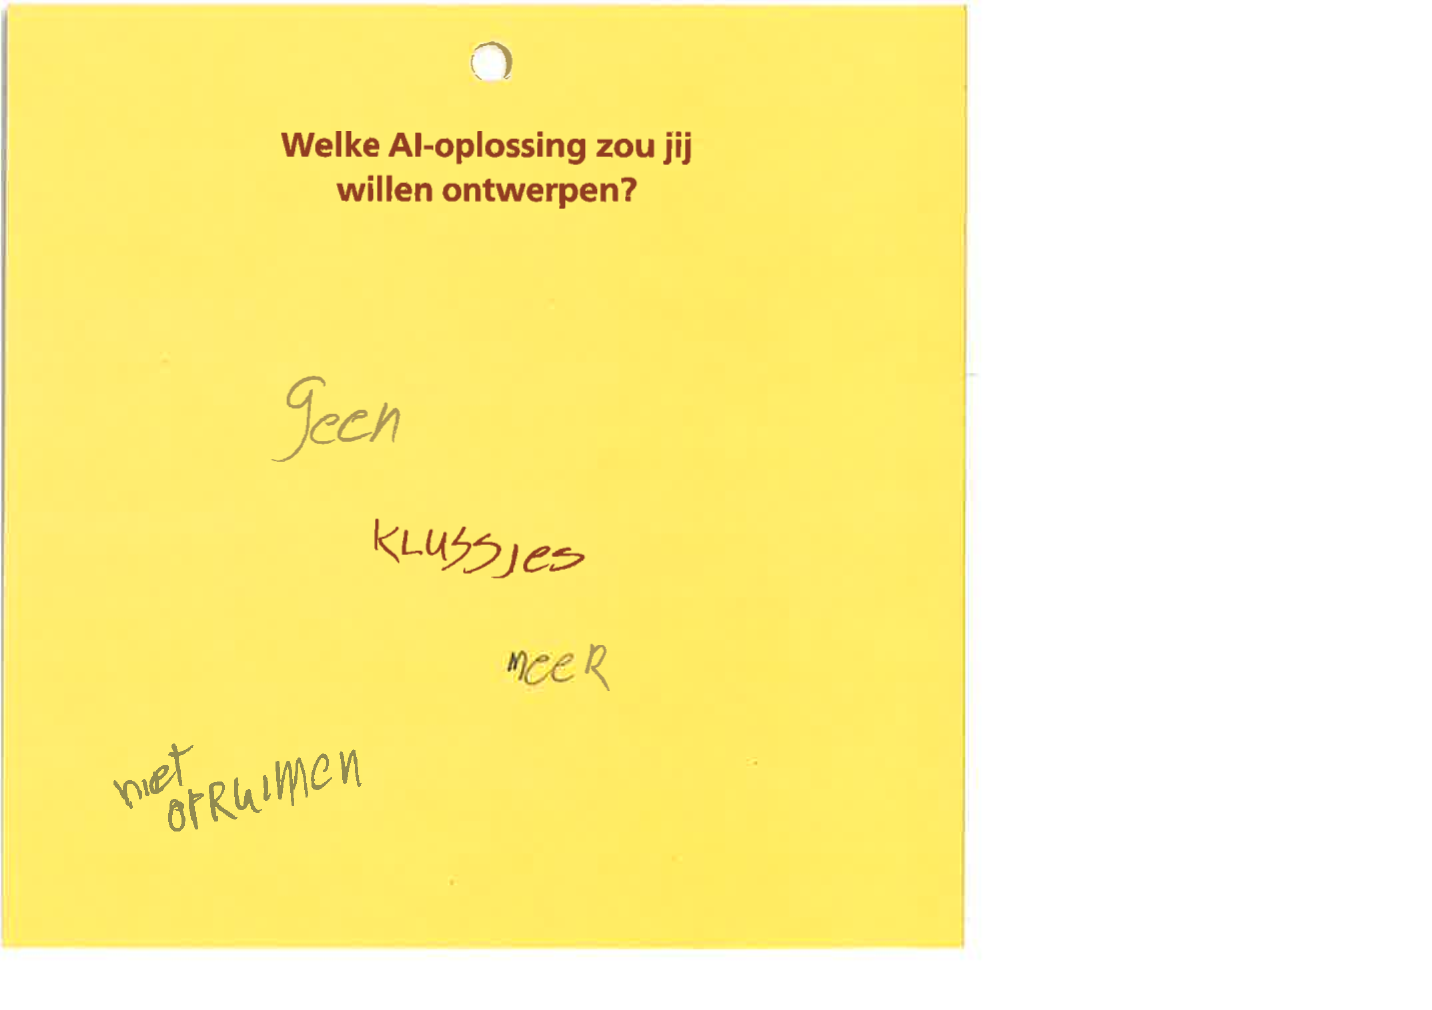 Welke AI-oplossing zou jij
willen ontwerpen?
geen
KLUSSJES
MEER
niet
OPRUIMEN